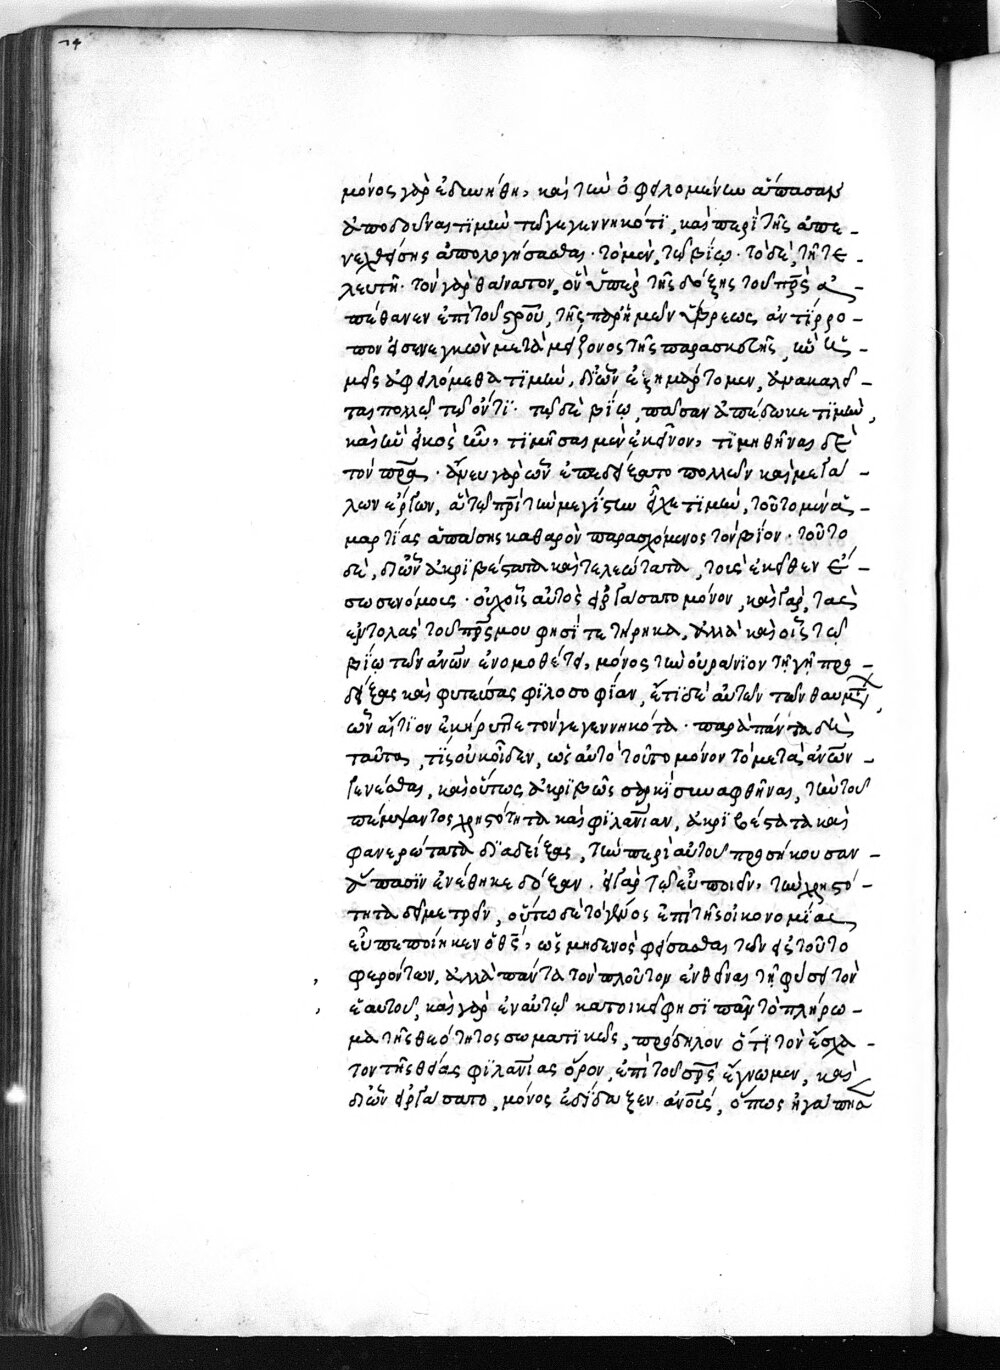 74
μόνος γὰρ ἐδυνήθη, καὶ τὴν ὀφειλομένην ἅπασαν
ἀποδοῦναι τιμὴν τῷ γεγεννηκότι, καὶ περὶ τῆς ἀπε
νεχθείσης ἀπολογήσασθαι· τὸ μὲν, τῷ βίῳ· τὸ δὲ, τῇ τε
λευτῇ· τὸν γὰρ θάνατον, ὃν ὑπὲρ τῆς δόξης τοῦ πρς ἀ
πέθανεν ἐπὶ τοῦ σροῦ, τῆς παρ' ἡμῶν ὕβρεως ἀντίρρο
πον εἰσενεγκὼν μετὰ μείζονος τῆς παρασκευῆς, ὧν ἡ
μεῖς ἀφειλόμεθα τιμὴν, δι' ὧν ἐξημάρτομεν, ἀνακαλεῖ
ται πολλῷ τῷ ὄντι· τῷ δὲ βίῳ, πᾶσαν ἀπέδωκε τιμὴν,
καὶ ἣν εἰκὸς ἦν, τιμῆσαι μὲν ἐκεῖνον, τιμηθῆναι δὲ
τὸν πρα· ἄνευ γὰρ ὧν ἐπεδείξατο πολλῶν καὶ μεγά
λων ἔργων, ἃ τῷ πρὶ τὴν μεγίστην εἶχε τιμὴν, τοῦτο μὲν ἁ
μαρτίας ἁπάσης καθαρὸν παρασχόμενος τὸν βίον· τοῦτο
δὲ, δι' ὧν ἀκριβέστατα καὶ τελεώτατα, τοὺς ἐκεῖθεν ἔ
σωσε νόμους· οὐχ οἷς αὐτὸς εἰργάσατο μόνον, καὶ γὰρ, τὰς
ἐντολὰς τοῦ πρς μου φησὶ τετήρηκα, ἀλλὰ καὶ οἷς τῷ
βίῳ τῶν ἀνων ἐνομοθέτει, μόνος τὴν οὐράνιον τῇ γῇ προ
δείξας καὶ φυτεύσας φιλοσοφίαν, ἔτι δὲ αὐτῶν τῶν θαυμάτ,
ὧν αἴτιον ἐκήρυττε τὸν γεγεννηκότα· παρὰ πάντα δὲ
ταῦτα, τίς οὐκ οἶδεν, ὡς αὐτὸ τοῦτο μόνον τὸ μετὰ ἀνων
γενέσθαι, καὶ οὕτως ἀκριβῶς σαρκὶ συναφθῆναι, τὴν τοῦ
πέμψαντος χρηστότητα καὶ φιλανίαν, ἀκριβέστατα καὶ
φανερώτατα διαδείξας, τὴν περὶ αὐτοῦ προσήκουσαν
ἅπασιν ἐνέθηκε δόξαν· εἰ γὰρ τῷ εὖ ποιεῖν, τὴν χρηστό
τητα δεῖ μετρεῖν, οὕτω δὲ τὸ γένος ἐπὶ τῆς οἰκονομίας
εὖ πεποίηκεν ὁ θς, ὡς μηδενὸς φείσασθαι τῶν εἰς τοῦτο
φερόντων, ἀλλὰ πάντα τὸν πλοῦτον ἐνθεῖναι τῇ φύσει τὸν
ἑαυτοῦ, καὶ γὰρ ἐν αὐτῷ κατοικεῖ φησὶ πᾶν τὸ πλήρω
μα τῆς θεότητος σωματικῶς, πρόδηλον ὅτι τὸν ἔσχα
τον τῆς θείας φιλανίας ὅρον, ἐπὶ τοῦ σρς ἔγνωμεν, καὶ
δι' ὧν εἰργάσατο, μόνος ἐδίδαξεν ἀνοις, ὅπως ἠγάπησε